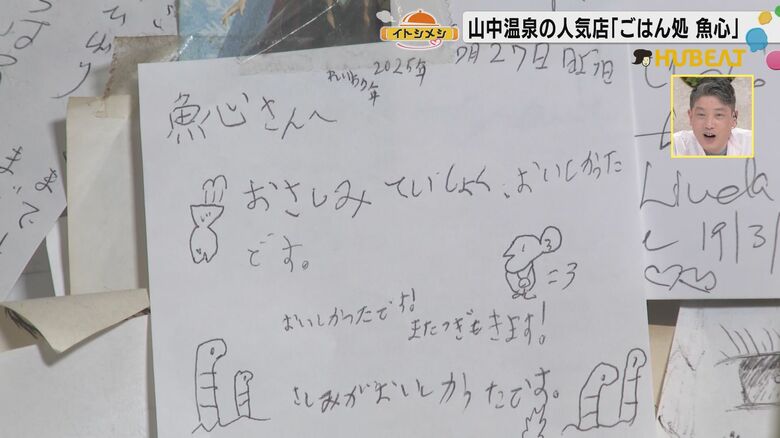 イトシメシ
山中温泉の人気店「ごはん処 魚心」
HUBEAT
れいわ7年
2025年
7月27日
魚心さんへ
おさしみ ていしょく、おいしかった
です。
おいしかったです!
またつぎもきます!
さしみがおいしかったです。
Linda
19/3/